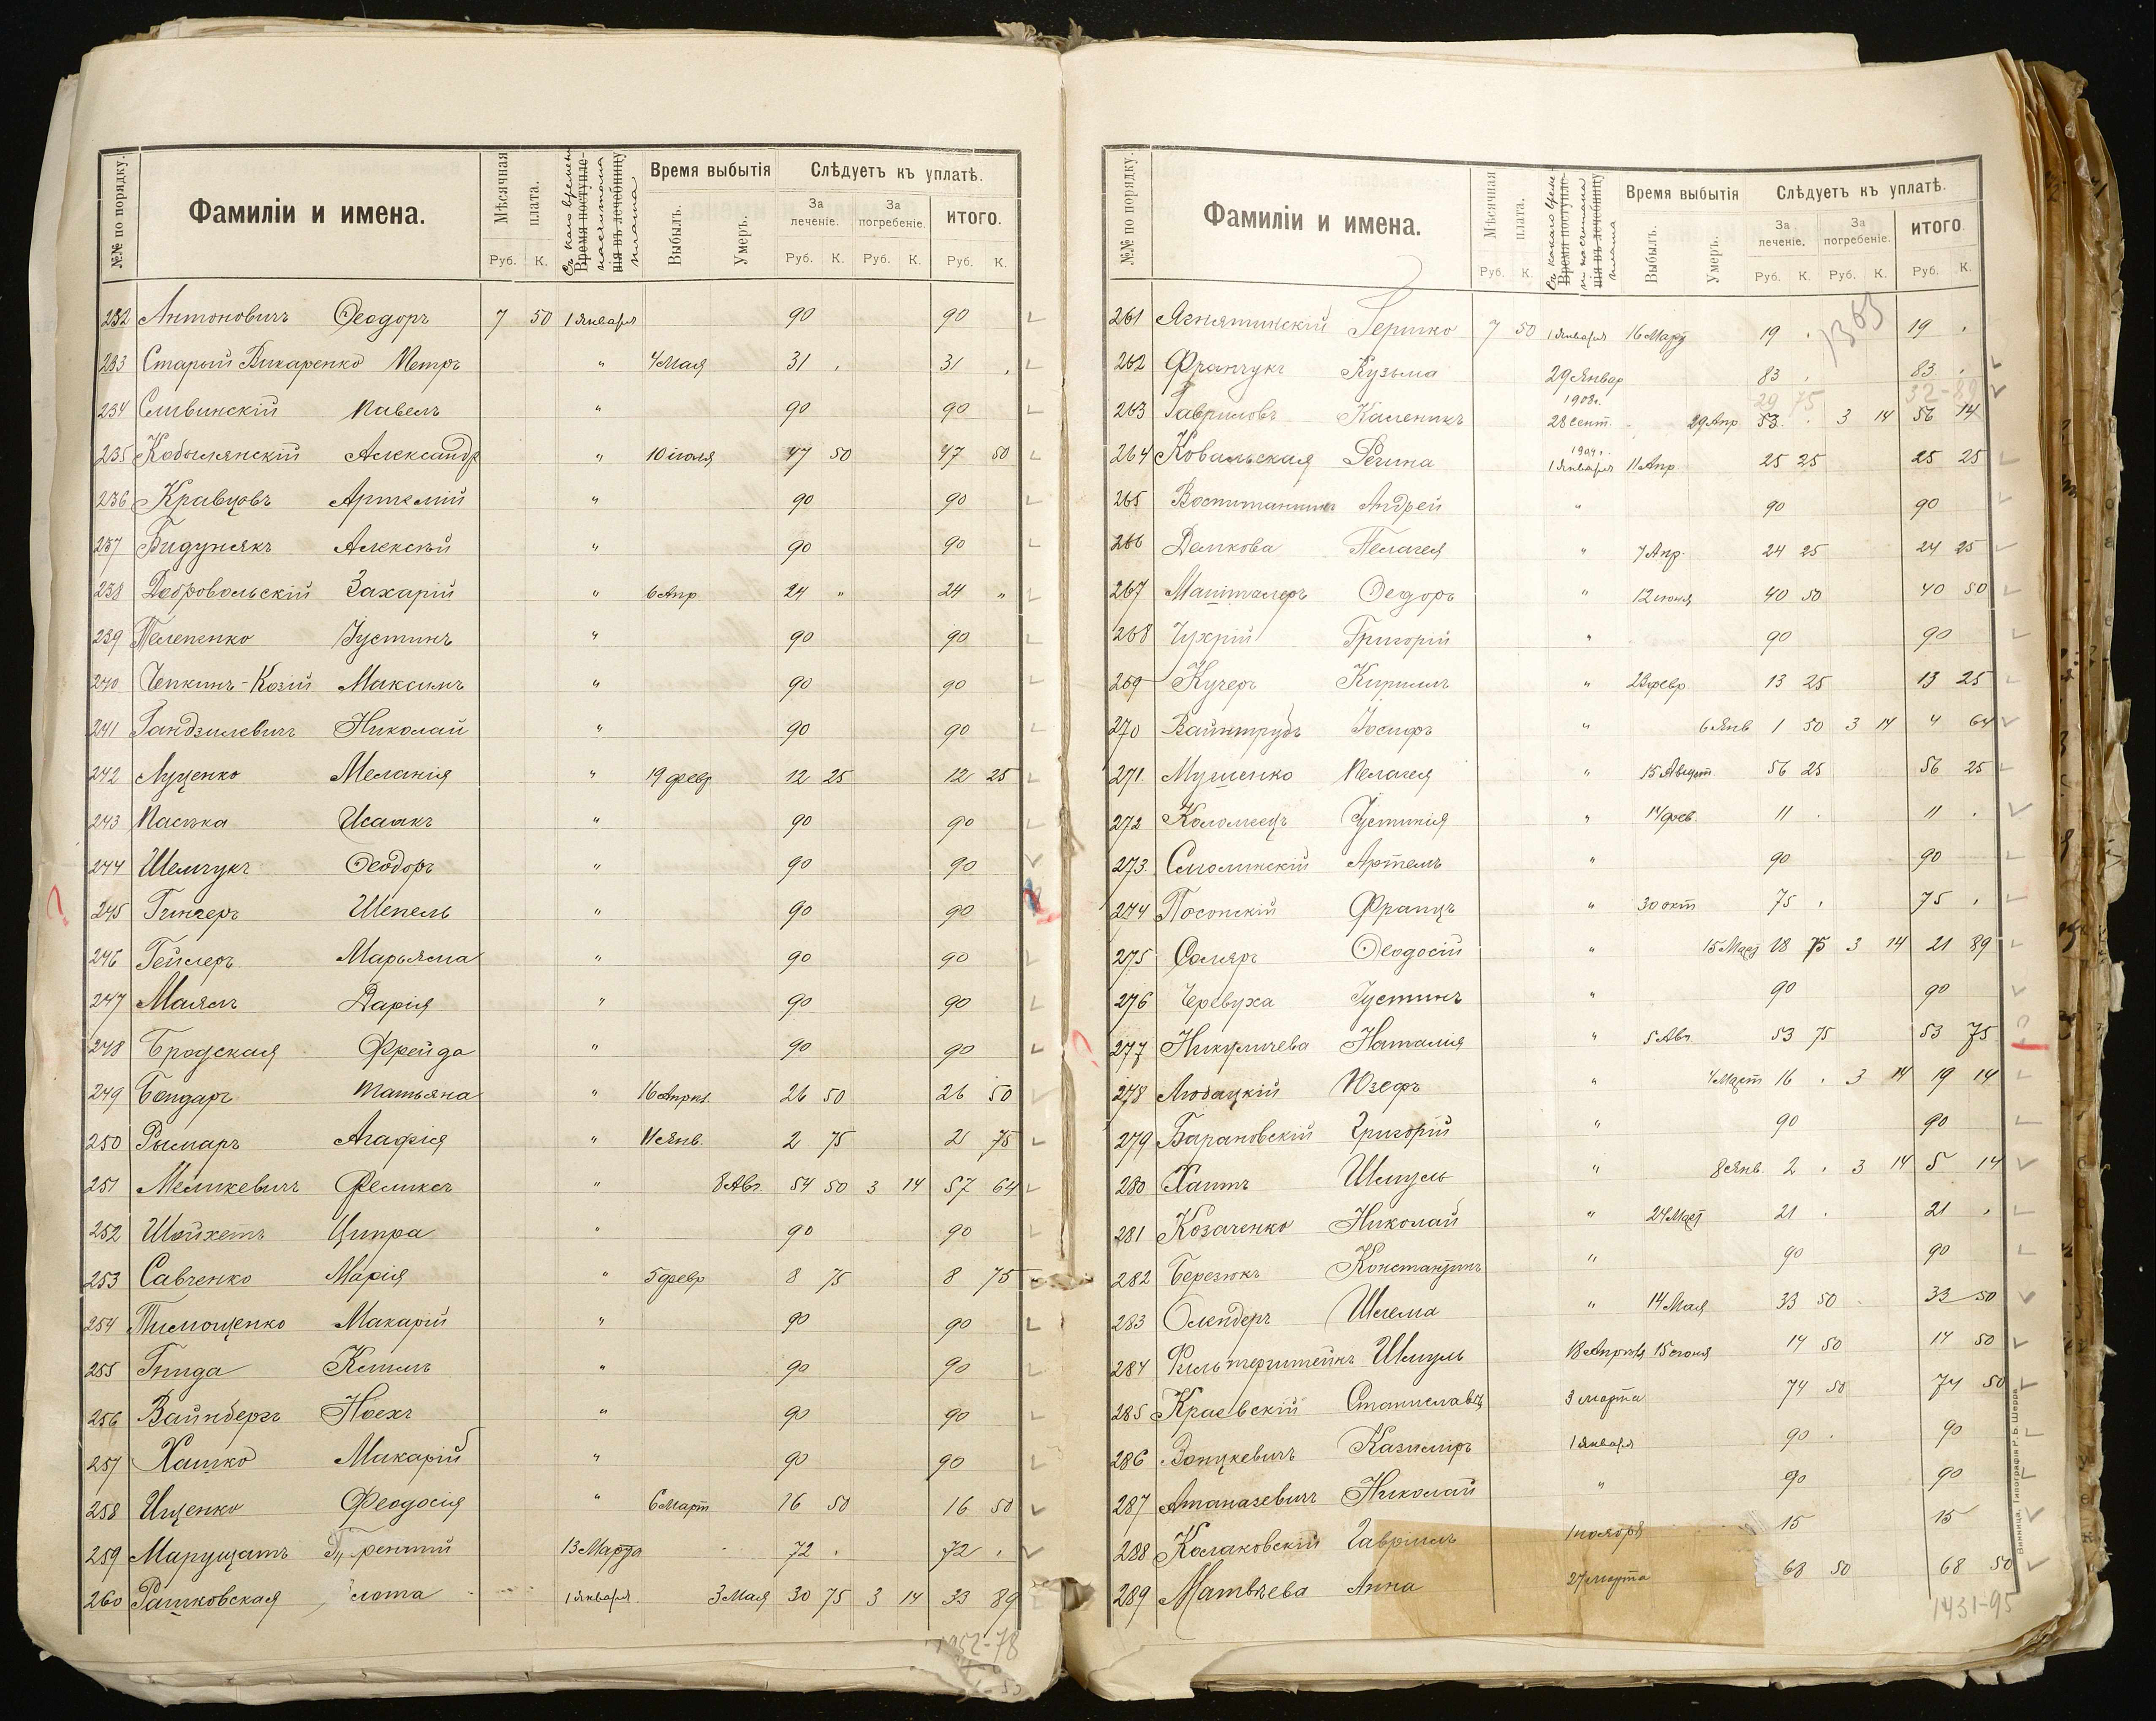 №№ по порядку. Фамиліи и имена. Мѣсячная плата. Съ какого времени насчитана плата Время поступле- нія въ лечебницу Время выбытія Слѣдуетъ къ уплатѣ.
Выбылъ. Умеръ. За леченіе. За погребеніе. ИТОГО.
Руб. К. Руб. К. Руб. К. Руб. К.
232 Антоновичъ Ѳеодоръ 7 50 1 Января 90 90
233 Старый Викаренко Петръ " 4 Мая 31 . 31 .
234 Сливинскій Павелъ " 90 90
235 Кобылянскій Александр " 10 іюля 47 50 47 50
236 Кравцовъ Артемій " 90 90
237 Бидунякъ Алексѣй " 90 90
238 Добровольскій Захарій " 6 Апр 24 " 24 "
239 Телепенко Іустинъ " 90 90
240 Чепкинъ-Козій Максимъ " 90 90
241 Гандзилевичъ Николай " 90 90
242 Луценко Меланія " 19 февр. 12 25 12 25
243 Пасѣка Исаакъ " 90 90
244 Шемчукъ Ѳеодоръ " 90 90
245 Гингеръ Шепель " 90 90
246 Гейлеръ Марьяма " 90 90
247 Маламъ Дарія " 90 90
248 Бродская Фрейда " 90 90
249 Бондаръ Татьяна " 16 Апрѣл. 26 50 26 50
250 Рымаръ Агафія " 11 Янв. 2 75 2 75
251 Мешкевичъ Феликсъ " 8 Авг. 54 50 3 14 57 64
252 Шойхетъ Ципра " 90 90
253 Савченко Марія " 5 февр 8 75 8 75
254 Тимощенко Макарій " 90 90
255 Гнида Климъ " 90 90
256 Вайнберъ Ноехъ " 90 90
257 Хашко Макарій " 90 90
258 Ищенко Феодосія " 6 Март 16 50 16 50
259 Марущатъ 13 Марта 72 . 72 .
260 Рашковская 1 Января 3 Мая 30 75 3 14 33 89
№№ по порядку. Фамиліи и имена. Мѣсячная плата. Съ какого времени насчитана плата Время поступле- нія въ лечебницу Время выбытія Слѣдуетъ къ уплатѣ.
Выбылъ. Умеръ. За леченіе. За погребеніе. ИТОГО
Руб. К. Руб. К. Руб. К. Руб. К.
261 Ягнятинскій Гершко 7 50 1 Января 16 Март 19 . 19 .
262 Франчукъ Кузьма 29 Январ 83 . 83 .
263 Гавриловъ Каленикъ 1908г. 28 сент. 29 Апр 53 . 3 14 56 14
264 Ковальская Регина 1909г. 1 Января 11 Апр. 25 25 25 25
265 Воспитанникъ Андрей " 90 90
266 Демкова Пелагея " 7 Апр. 24 25 24 25
267 Машталеръ Ѳедоръ " 12 іюня 40 50 40 50
268 Чухрій Григорій " 90 90
269 Кучеръ Кириллъ " 23 февр 13 25 13 25
270 Вайнтрубъ Іосифъ " 6 Янв 1 50 3 14 4 64
271. Мушенко Пелагея " 15 Август 56 25 56 25
272 Коломеецъ Іустинія " 14 фев. 11 . 11 .
273. Смолинскій Артемъ " 90 90
274 Посопскій Францъ " 30 окт 75 . 75 .
275 Соляръ Ѳеодосій " 15 Март 18 75 3 14 21 89
276 Черевуха Іустинъ " 90 90
277 Никуличева Наталія " 5 Авг. 53 75 53 75
278 Любацкій Юзефъ " 4 Март 16 . 3 14 19 14
279 Барановскій Григорій " 90 90
280 Хаитъ Шмуль " 8 Янв 2 . 3 14 5 14
281 Козаченко Николай " 24 Март 21 . 21 .
282 Березюкъ Константинъ " 90 90
283 Олендеръ Шлема " 14 Мая 33 50 33 50
284 Шмуль 18 Апрѣля 15 іюня 14 50 14 50
285 Краевскій Станиславъ 3 марта 74 50 74 50
286 Зопцкевичъ Казиміръ 1 Января 90 . 90
287 Атаназевичъ Николай " 90 90
288 Колаковскій Гавріилъ 1 ноября 15 15
289 Матвѣева Анна 27 марта 68 50 68 50
1431-95
Винница, Типографія Р. Б. Шерра